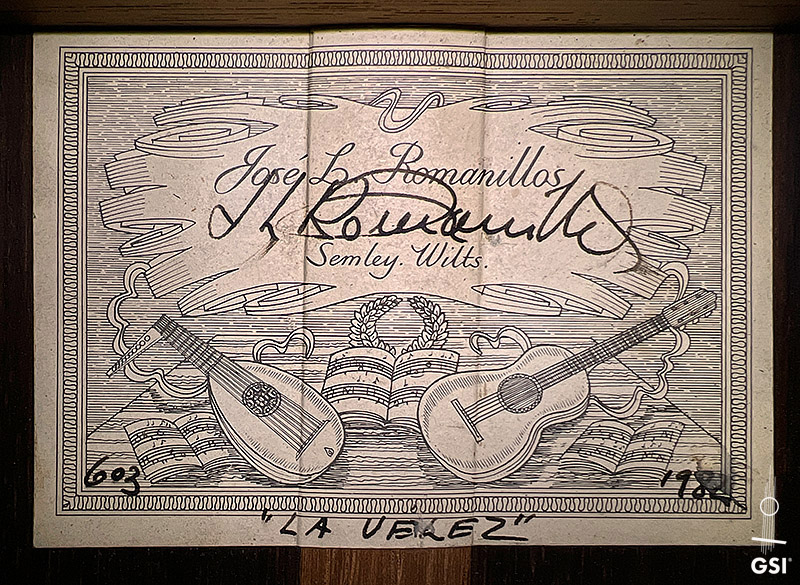 José L. Romanillos
JL Romanillos
Semley. Wilts.
603
1982
"LA VELEZ"
GSI